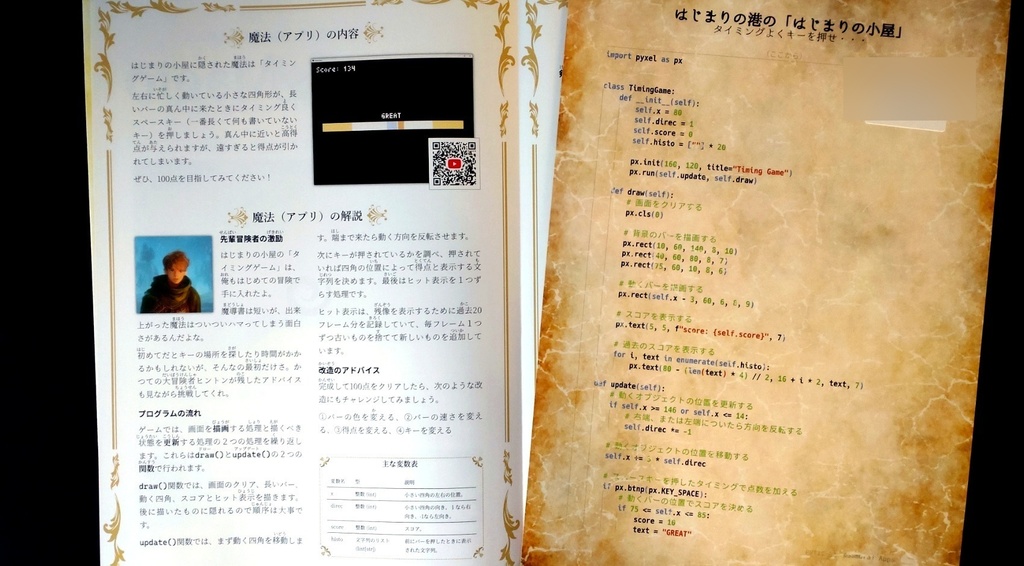 魔法（アプリ）の内容
はじまりの小屋に隠された魔法は「タイミングゲーム」です。
左右に忙しく動いている小さな四角形が、長いバーの真ん中に来たときにタイミング良くスペースキー（一番長くて何も書いていないキー）を押しましょう。真ん中に近いと高得点が与えられますが、遠すぎると得点が引かれてしまいます。
ぜひ、100点を目指してみてください！
Score: 134
GREAT
魔法（アプリ）の解説
先輩冒険者の激励
はじまりの小屋の「タイミングゲーム」は、俺もはじめての冒険で手に入れたよ。
魔導書は短いが、出来上がった魔法はついついハマってしまう面白さがあるんだよな。
初めてだとキーの場所を探したり時間がかかるかもしれないが、そんなの最初だけさ。かつての大冒険者ヒントンが残したアドバイスも見ながら挑戦してくれ。
プログラムの流れ
ゲームでは、画面を描画する処理と描くべき状態を更新する処理の２つの処理を繰り返します。これらはdraw()とupdate()の２つの関数で行われます。
draw()関数では、画面のクリア、長いバー、動く四角、スコアとヒット表示を描きます。後に描いたものに隠れるので順序は大事です。
update()関数では、まず動く四角を移動しま
す。端まで来たら動く方向を反転させます。
次にキーが押されているかを調べ、押されていれば四角の位置によって得点と表示する文字列を決めます。最後はヒット表示を１つずらす処理です。
ヒット表示は、残像を表示するために過去20フレーム分を記録していて、毎フレーム１つずつ古いものを捨てて新しいものを追加しています。
改造のアドバイス
完成して100点をクリアしたら、次のような改造にもチャレンジしてみましょう。
①バーの色を変える、②バーの速さを変える、③得点を変える、④キーを変える
主な変数表
変数名 型 説明
x 整数(int) 小さい四角の左右の位置。
direc 整数(int) 小さい四角の向き。1なら右向き、-1なら左向き。
score 整数(int) スコア。
histo 文字列のリスト(list(str)) 前にバーを押したときに表示された文字列。
はじまりの港の「はじまりの小屋」
タイミングよくキーを押せ・・・
import pyxel as px
class TimingGame:
def __init__(self):
self.x = 80
self.direc = 1
self.score = 0
self.histo = [""] * 20
px.init(160, 120, title="Timing Game")
px.run(self.update, self.draw)
def draw(self):
# 画面をクリアする
px.cls(0)
# 背景のバーを描画する
px.rect(10, 60, 140, 8, 10)
px.rect(40, 60, 80, 8, 7)
px.rect(75, 60, 10, 8, 6)
# 動くバーを描画する
px.rect(self.x - 3, 60, 6, 8, 9)
# スコアを表示する
px.text(5, 5, f"score: {self.score}", 7)
# 過去のスコアを表示する
for i, text in enumerate(self.histo):
px.text(80 - (len(text) * 4) // 2, 16 + i * 2, text, 7)
def update(self):
# 動くオブジェクトの位置を更新する
if self.x >= 146 or self.x <= 14:
# 右端、または左端についたら方向を反転する
self.direc *= -1
# 動くオブジェクトの位置を移動する
self.x += * self.direc
# スペースキーを押したタイミングで点数を加える
if px.btnp(px.KEY_SPACE):
# 動くバーの位置でスコアを決める
if 75 <= self.x <= 85:
score = 10
text = "GREAT"